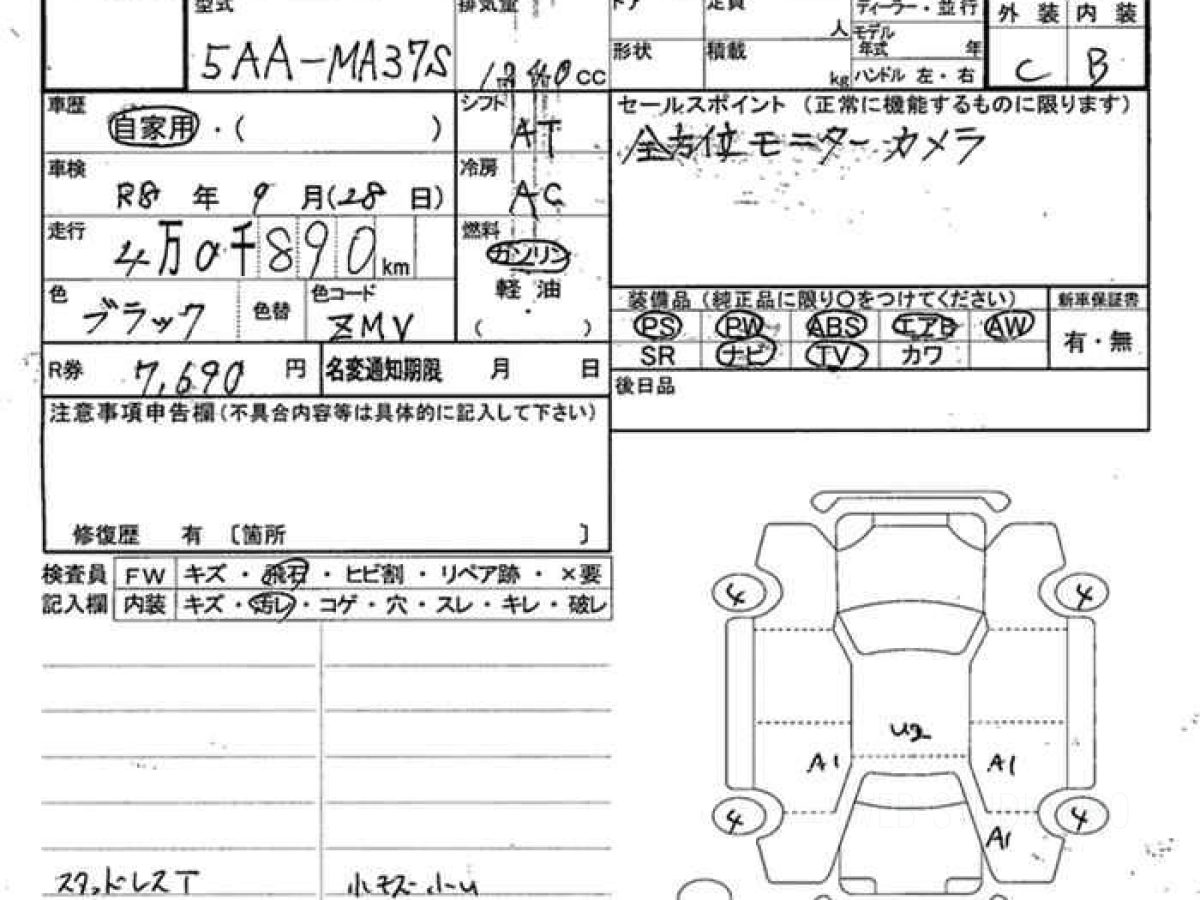 型式 排気量 ドア 定員 人 ディーラー・並行 外装 内装
5AA-MA37S 1240 CC 形状 積載 kg モデル年式 年 C B
ハンドル 左・右
車歴 自家用・( ) シフト AT セールスポイント (正常に機能するものに限ります)
全方位モニターカメラ
車検 R8年9月(28日) 冷房 AC
走行 4万0千890km 燃料 ガソリン
軽・油
( )
色 ブラック 色替 色コード ZMV
装備品 (純正品に限り○をつけてください) 新車保証書
PS PW ABS エアB AW 有・無
SR ナビ TV カワ
R券 7,690円 名変通知期限 月 日 後日品
注意事項申告欄(不具合内容等は具体的に記入して下さい)
修復歴 有 〔箇所 〕
検査員 FW キズ・飛石・ヒビ割・リペア跡・×要
記入欄 内装 キズ・汚レ・コゲ・穴・スレ・キレ・破レ
4 4
U2
A1 A1
4 4
A1
スタッドレスT 小キズ小U